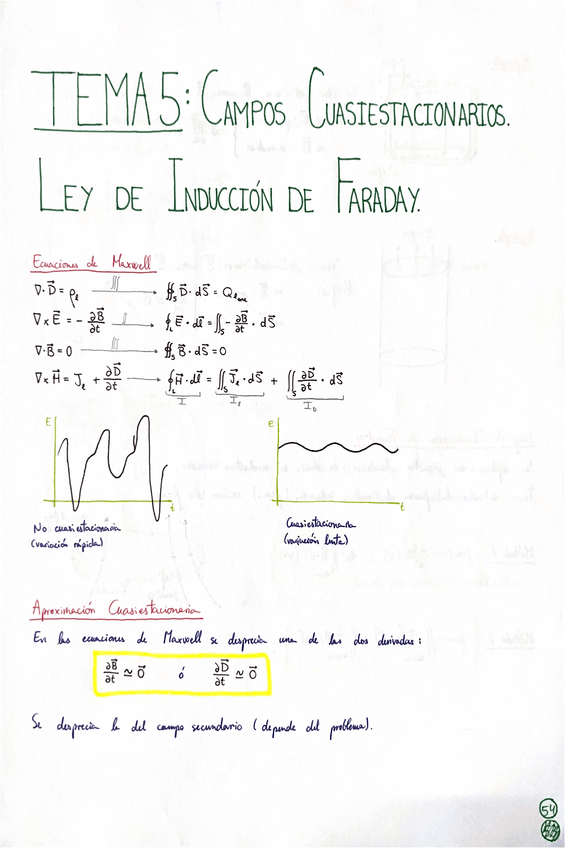 TEMA 5: CAMPOS CUASIESTACIONARIOS.
LEY DE INDUCCIÓN DE FARADAY.
Ecuaciones de Maxwell
∇·D⃗ = ρₗ ——∭——→ ∯ₛ D⃗·dS⃗ = Qₗ enc
∇×E⃗ = - ∂B⃗/∂t ——∬——→ ∮_L E⃗·dl⃗ = ∬ₛ - ∂B⃗/∂t · dS⃗
∇·B⃗ = 0 ——∭——→ ∯ₛ B⃗·dS⃗ = 0
∇×H⃗ = Jₗ + ∂D⃗/∂t ——→ ∮_L H⃗·dl⃗ = ∬ₛ J⃗ₗ·dS⃗ + ∬ₛ ∂D⃗/∂t · dS⃗
I Iₗ I_D
E E
t t
No cuasiestacionaria
(variación rápida)
Cuasiestacionaria
(variación lenta)
Aproximación Cuasiestacionaria
En las ecuaciones de Maxwell se desprecia una de las dos derivadas:
∂B⃗/∂t ≃ 0⃗ ó ∂D⃗/∂t ≃ 0⃗
Se desprecia la del campo secundario (depende del problema).
54